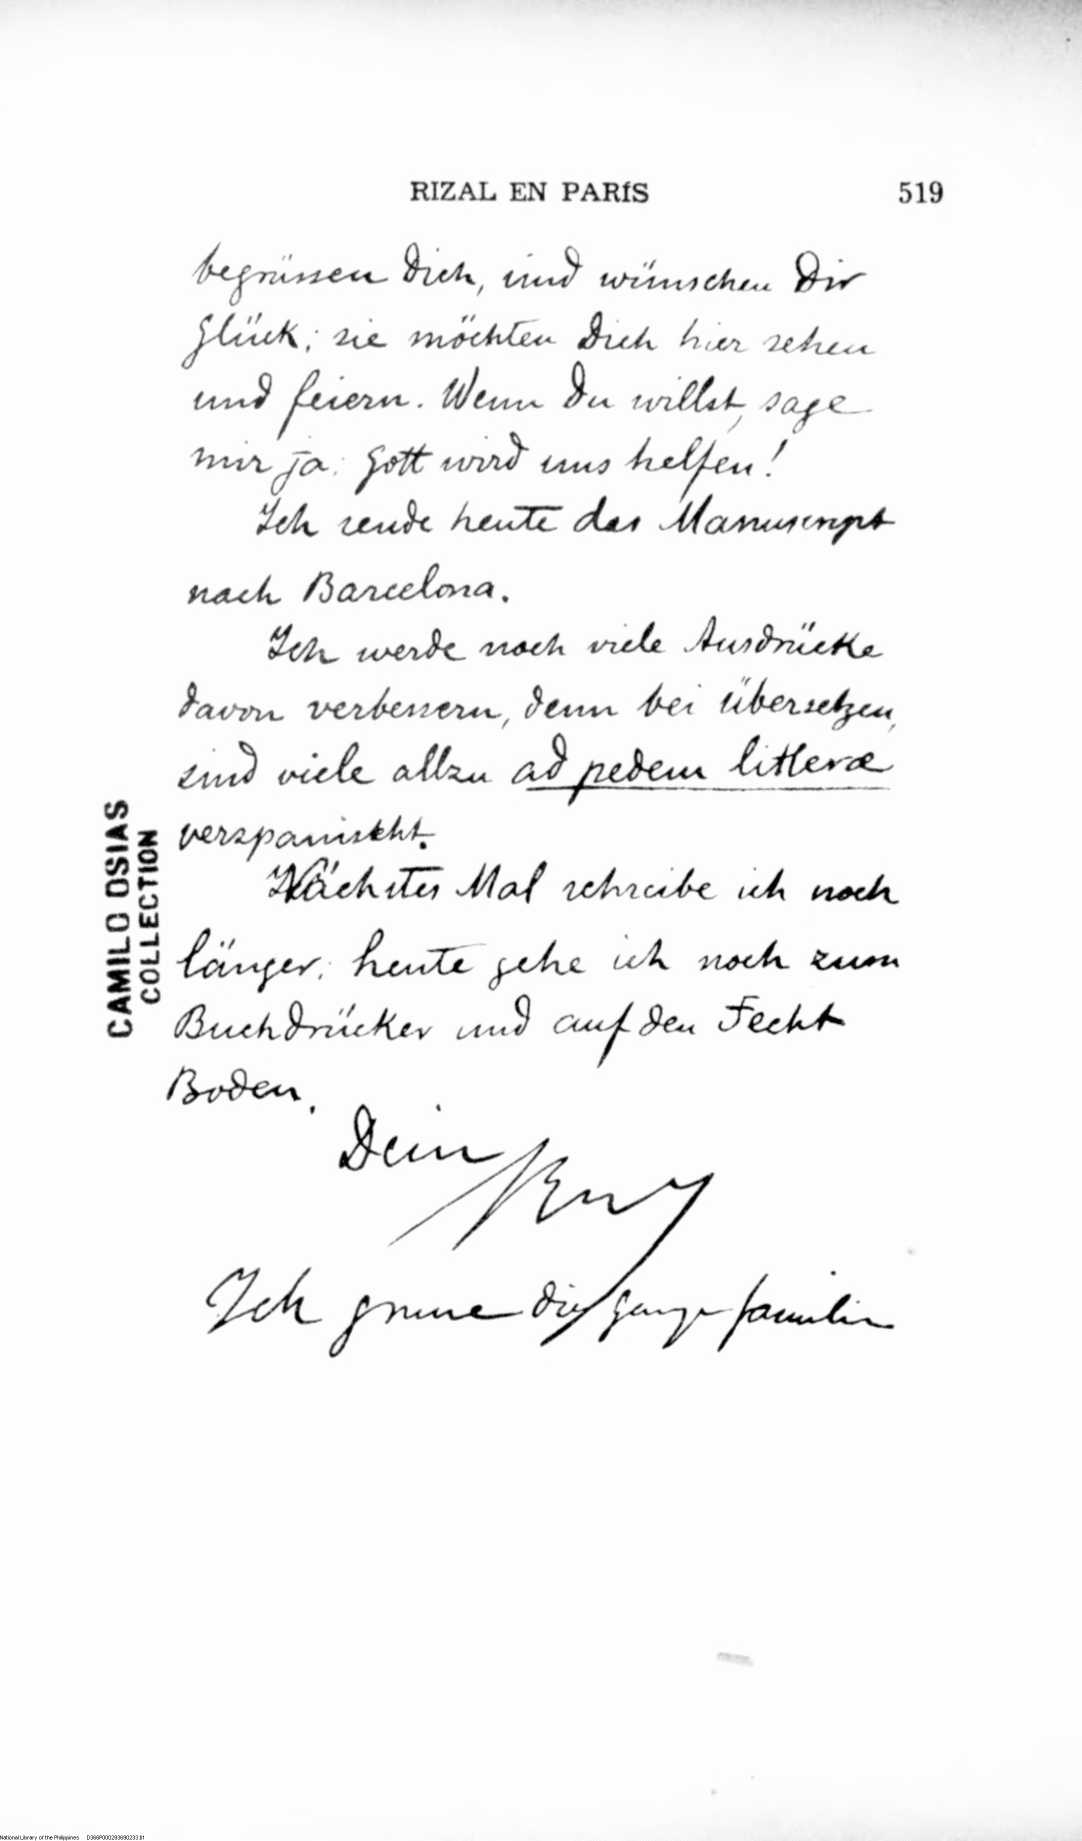 RIZAL EN PARÍS 519
begrüssen Dich, und wünschen Dir
Glück; sie möchten Dich hier sehen
und feiern. Wenn Du willst, sage
mir ja: Gott wird uns helfen!
Ich sende heute das Manuscript
nach Barcelona.
Ich werde noch viele Ausdrücke
davon verbessern, denn bei Übersetzen,
sind viele allzu ad pedem litteræ
verspanischt.
Nächstes Mal schreibe ich noch
länger; heute gehe ich noch zum
Buchdrücker und auf den Fecht
Boden.
Dein
Ich grüsse die ganze Familie
CAMILO OSIAS
COLLECTION
National Library of the Philippines D366P000293690233.tif